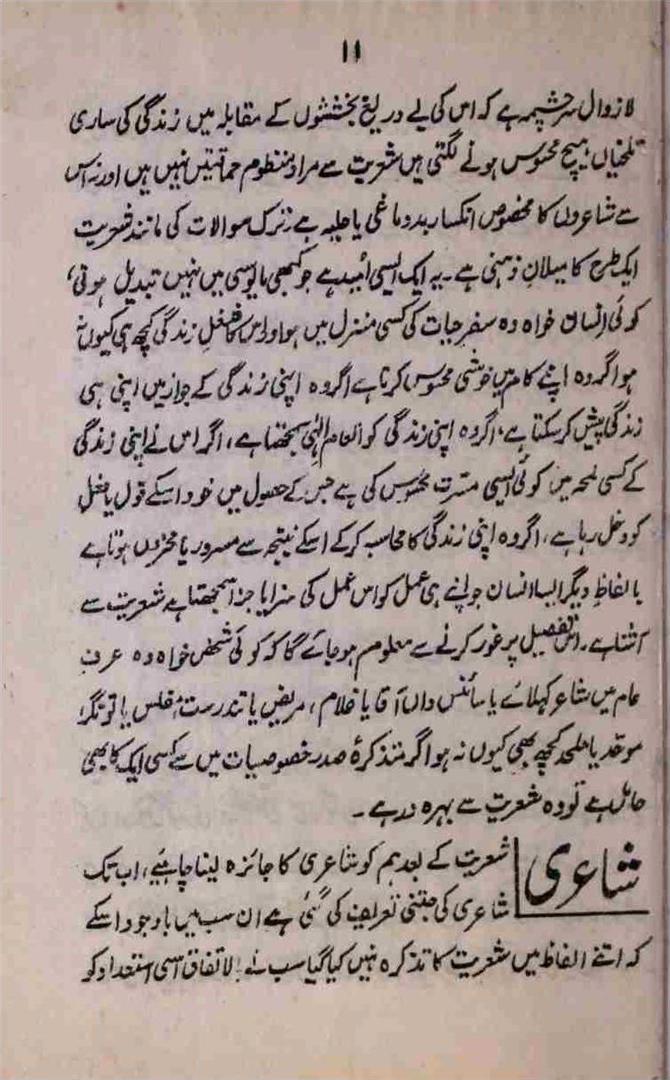 ۱۱
لازوال سرچشمہ ہے کہ اس کی بے دریغ بخششوں کے مقابلہ میں زندگی کی ساری
تلخیاں ہیچ محسوس ہونے لگتی ہیں شعریت سے مراد منظوم حماقتیں نہیں ہیں اور نہ اس
سے شاعروں کا مخصوص انکسار بددماغی یا حلیہ ہے ترک موالات کی مانند شعریت
ایک طرح کا میلانِ ذہنی ہے۔ یہ ایک ایسی امید ہے جو کبھی مایوسی میں نہیں تبدیل ہوتی،
کوئی انسان خواہ وہ سفر حیات کی کسی منزل میں ہو اور اس کا شغلِ زندگی کچھ ہی کیوں نہ
ہو اگر وہ اپنے کام میں خوشی محسوس کرتا ہے اگر وہ اپنی زندگی کے جواز میں اپنی ہی
زندگی پیش کر سکتا ہے، اگر وہ اپنی زندگی کو انعامِ الٰہی سمجھتا ہے، اگر اس نے اپنی زندگی
کے کسی لمحہ میں کوئی ایسی مسرت محسوس کی ہے جس کے حصول میں خود اسکے قول یا فعل
کو دخل رہا ہے، اگر وہ اپنی زندگی کا محاسبہ کرکے اسکے نتیجہ سے مسرور یا محزوں ہوتا ہے
با لفاظِ دیگر ایسا انسان جو اپنے ہی عمل کو اس عمل کی سزا یا جزا سمجھتا ہے شعریت سے
آشنا ہے۔ اس تفصیل پر غور کرنے سے معلوم ہو جائے گا کہ کوئی شخص خواہ وہ عرفِ
عام میں شاعر کہلائے یا سائنس داں آقا یا غلام، مریض یا تندرست مفلس یا تونگر
موحّد یا ملحد کچھ بھی کیوں نہ ہو اگر متذکرۂ صدر خصوصیات میں سے کسی ایک کا بھی
حامل ہے تو وہ شعریت سے بہرہ ور ہے۔
شاعری
شعریت کے بعد ہم کو شاعری کا جائزہ لینا چاہیے، اب تک
شاعری کی جتنی تعریفیں کی گئی ہے ان سب میں باوجود اسکے
کہ اتنے الفاظ میں شعریت کا تذکرہ نہیں کیا گیا سب نے بالاتفاق اسی استعداد کو